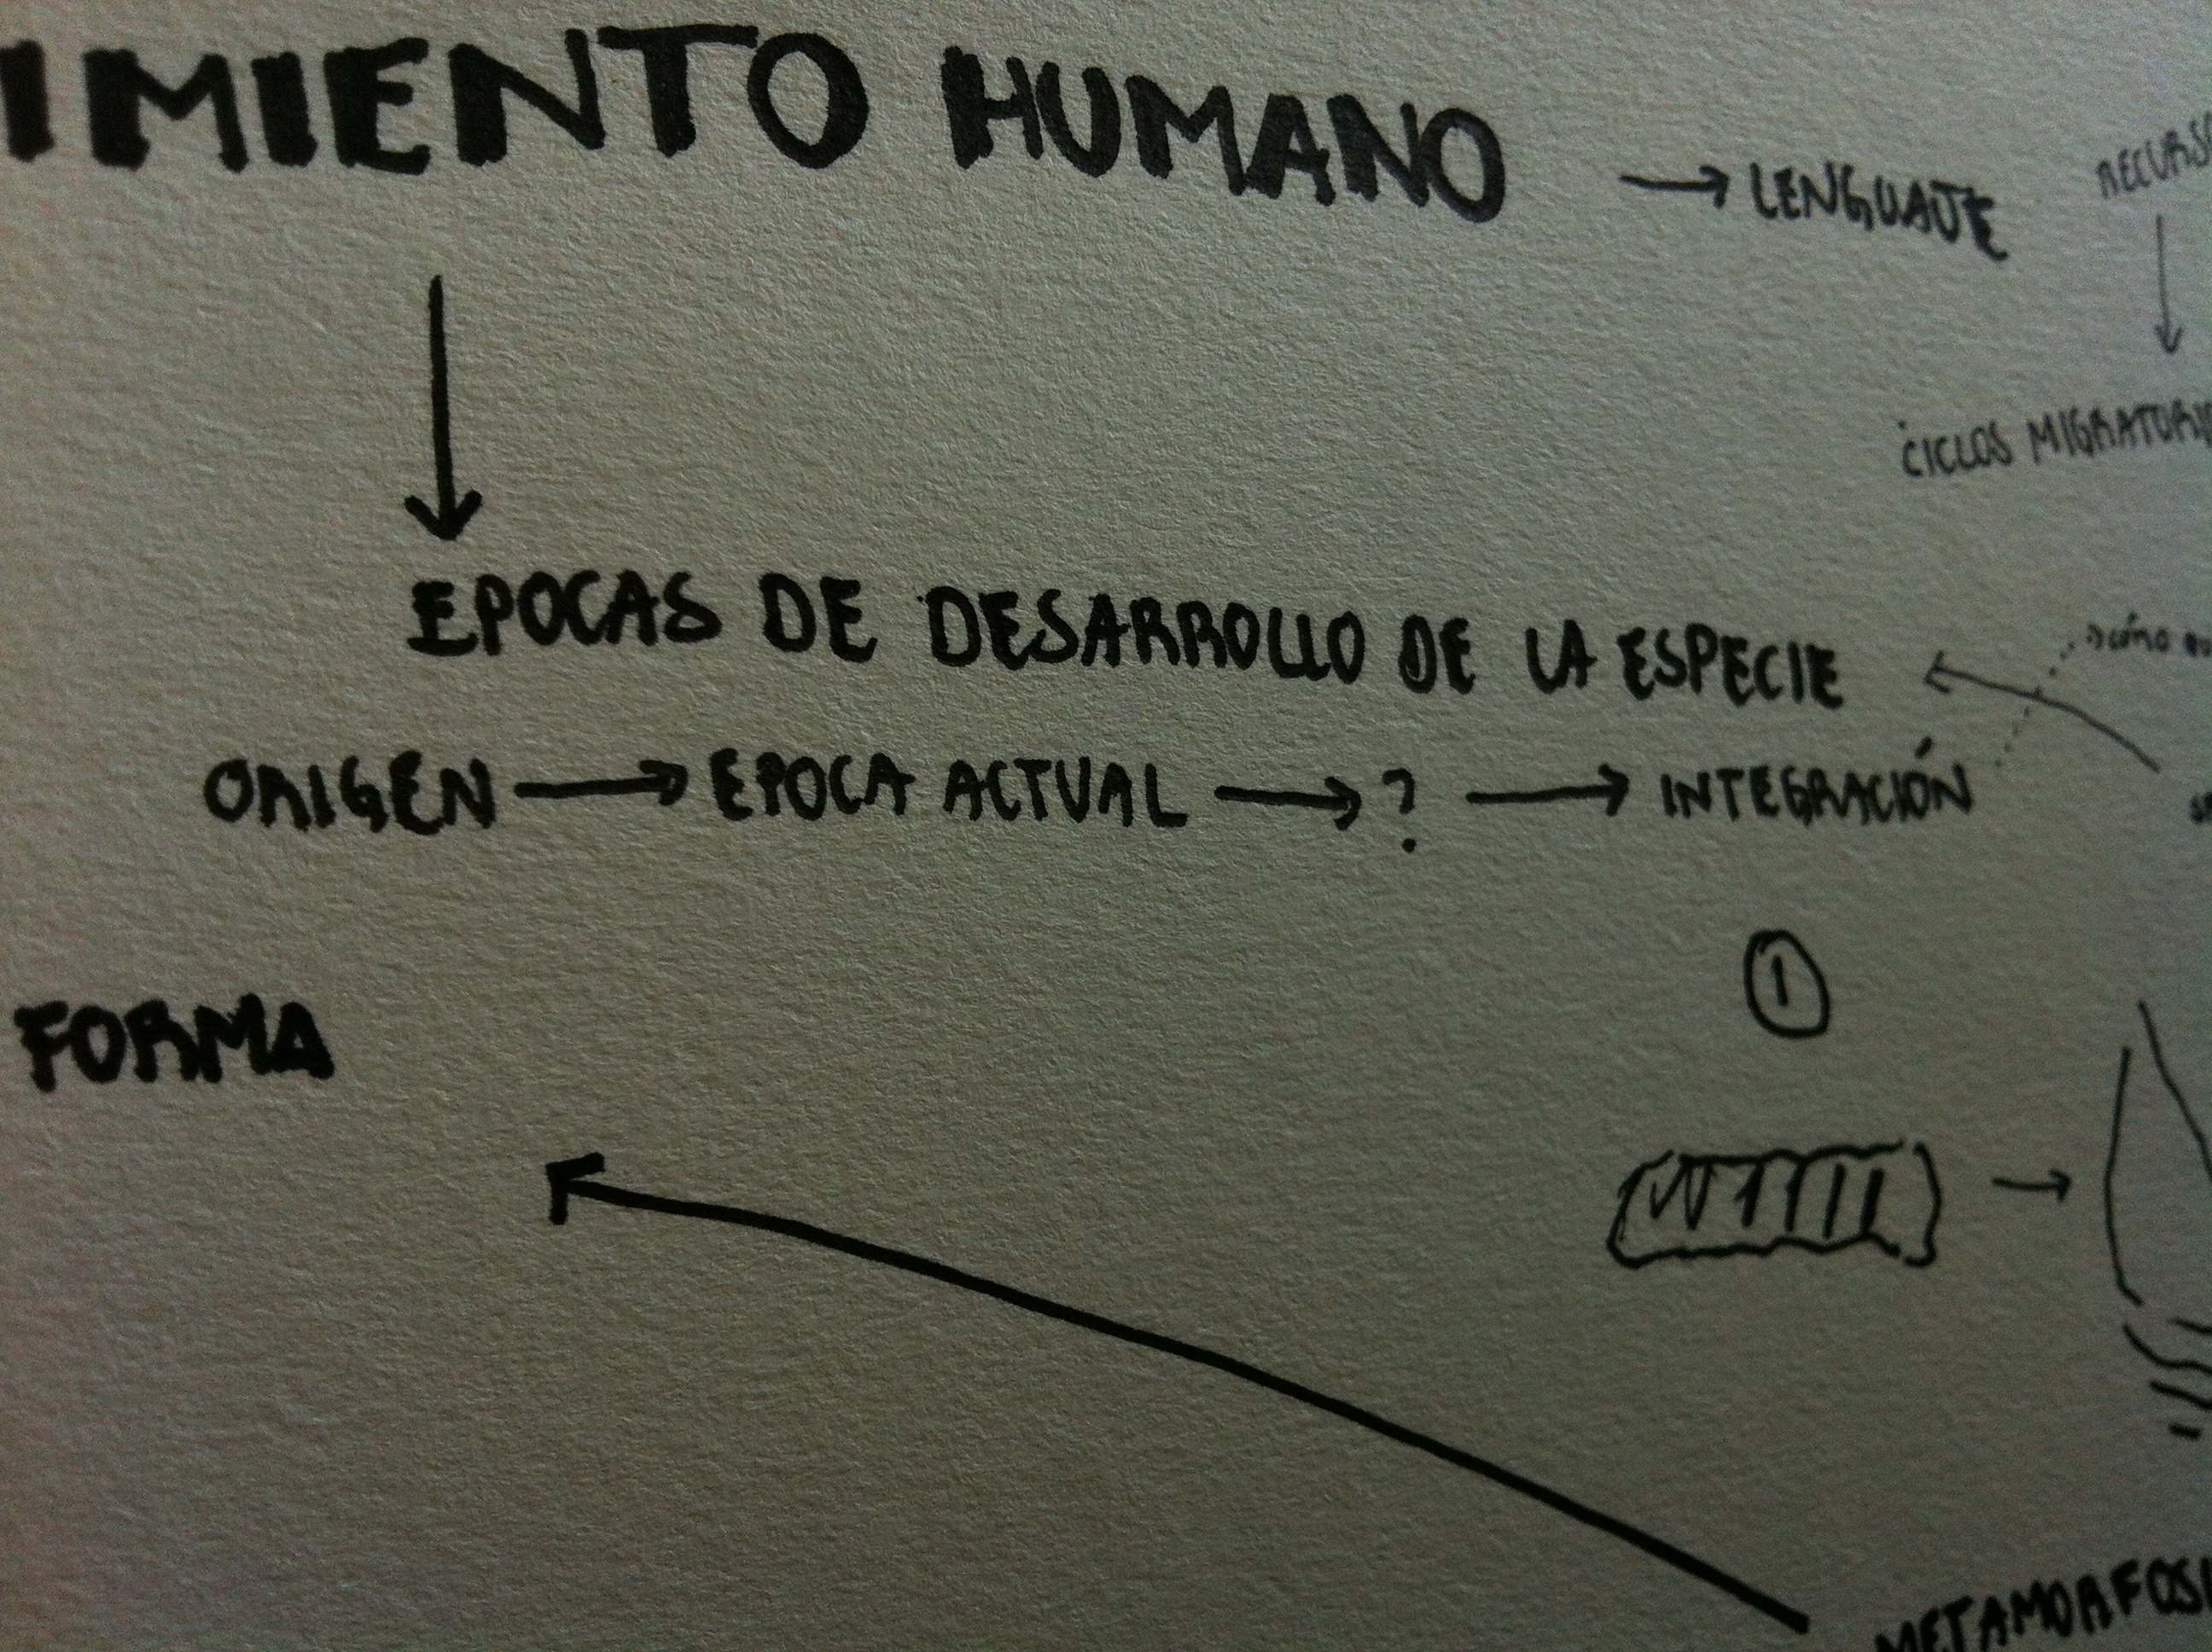 IMIENTO HUMANO → LENGUAJE
RECURS
↓
CICLOS MIGRATORI
↓
EPOCAS DE DESARROLLO DE LA ESPECIE ←
ORIGEN → EPOCA ACTUAL → ? → INTEGRACIÓN
1
FORMA
METAMORFOSI